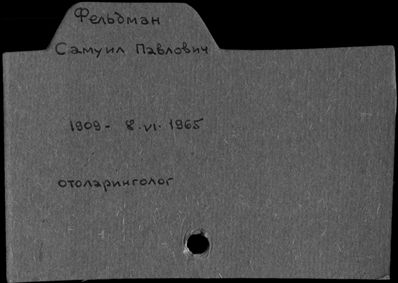 Фельдман
Самуил Павлович
1909 - 8.VI.1965
отоларинголог